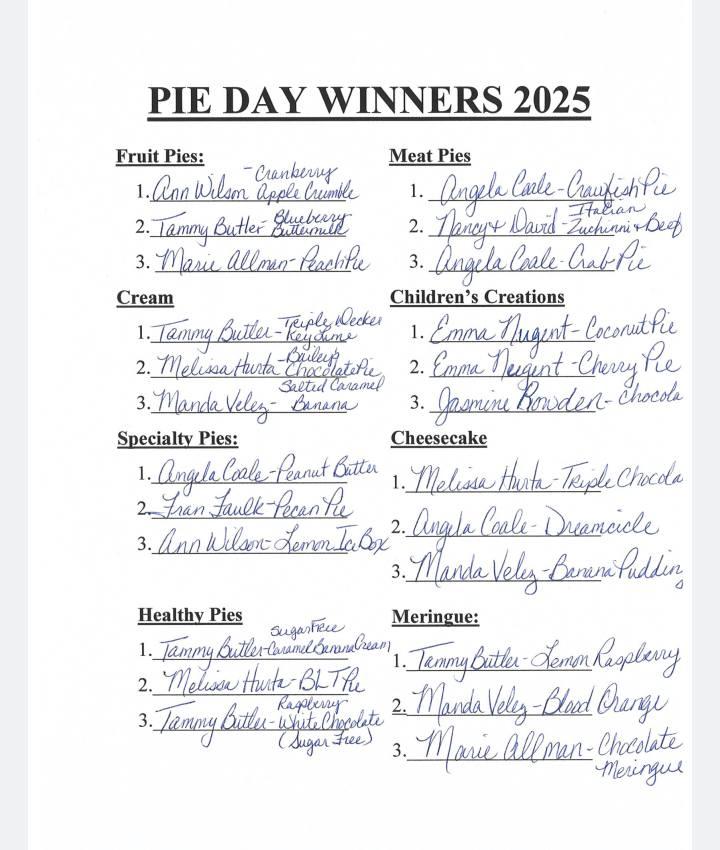 PIE DAY WINNERS 2025
Fruit Pies:
1. Ann Wilson - Cranberry Apple Crumble
2. Tammy Butler - Blueberry Buttermilk
3. Marie Allman - Peach Pie
Meat Pies
1. Angela Coale - Crawfish Pie
2. Nancy & David - Italian Zuchinni & Beef
3. Angela Coale - Crab Pie
Cream
1. Tammy Butler - Triple Decker Key Lime
2. Melissa Hurta - Bailey's Chocolate Pie
3. Manda Velez - Salted Caramel Banana
Children's Creations
1. Emma Nugent - Coconut Pie
2. Emma Nugent - Cherry Pie
3. Jasmine Rowden - Chocola
Specialty Pies:
1. Angela Coale - Peanut Butter
2. Fran Faulk - Pecan Pie
3. Ann Wilson - Lemon Ice Box
Cheesecake
1. Melissa Hurta - Triple Chocola
2. Angela Coale - Dreamcicle
3. Manda Velez - Banana Pudding
Healthy Pies
1. Tammy Butler - Sugar Free Caramel Banana Cream
2. Melissa Hurta - BLT Pie
3. Tammy Butler - Raspberry White Chocolate
(Sugar Free)
Meringue:
1. Tammy Butler - Lemon Raspberry
2. Manda Velez - Blood Orange
3. Marie Allman - Chocolate
Meringue